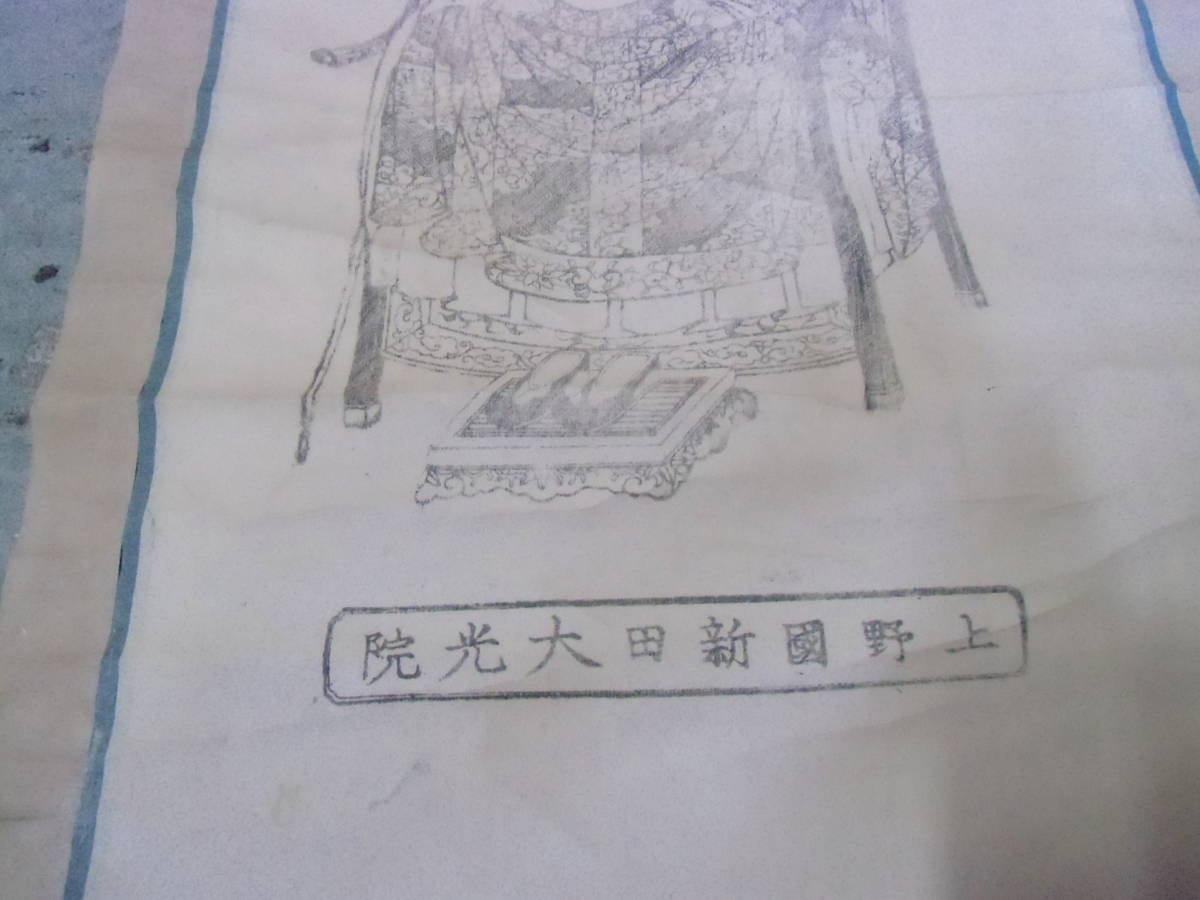 上野國新田大光院